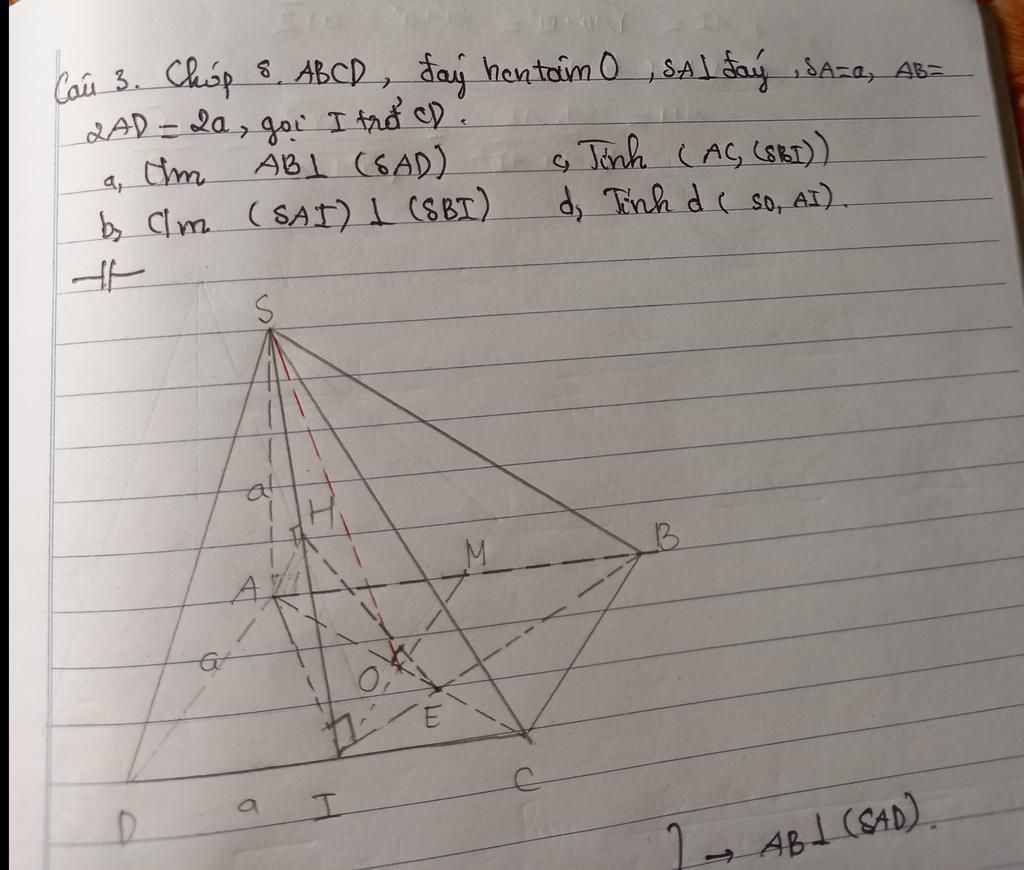 Câu 3. Chóp S. ABCD, đáy hcn tâm O, SA⊥ đáy, SA=a, AB=
2AD = 2a, gọi I trđ CD.
a, C/m AB⊥ (SAD) c, Tính (AC, (SBI))
b, C/m (SAI) ⊥ (SBI) d, Tính d ( SO, AI).
S
a
H
B
M
A
a
O
E
C
D a I
] → AB⊥ (SAD).